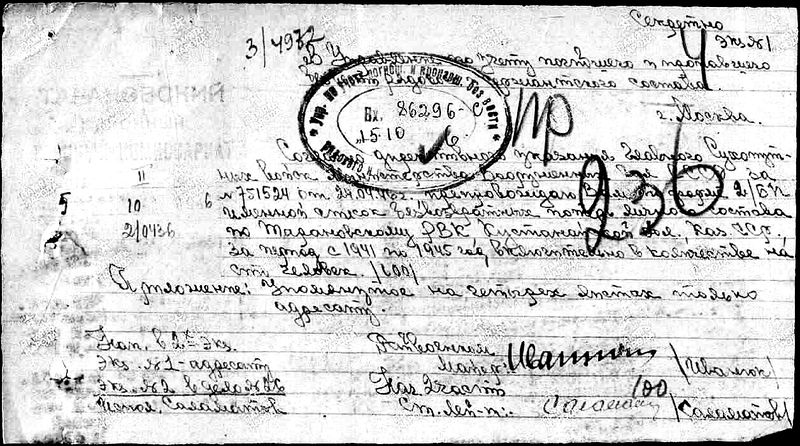 Секретно
экз №1
3/4972
В Управление по учету погибшего и пропавшего
сержантского состава.
г. Москва.
Упр. по учёту погибш. и пропавш. без вести
Вх. 86296 с
15 10 6
4
пр
236
Согласно директивного указания Главного Сухопут-
ных войск Министерства Вооруженных Сил за
№751524 от 24.04.46г. препровождаю Вам по форме 2/БП
именной список безвозвратных потерь личного состава
по Тарановскому РВК Кустанайской обл. Каз. ССР.
за период с 1941 по 1945 год включительно в количестве на
сто человек /100/
II
5 10 6
2/0436
Приложение: Упомянутое на четырех листах только
адресату.
Нап. в 2х экз.
экз. №1 - адресату
экз. №2 в дело №26
испол. Саламатов
Райвоенком
Майор: /Ивашко/
Нач. 3 части
100
Ст. лей-т: /Саламатов/